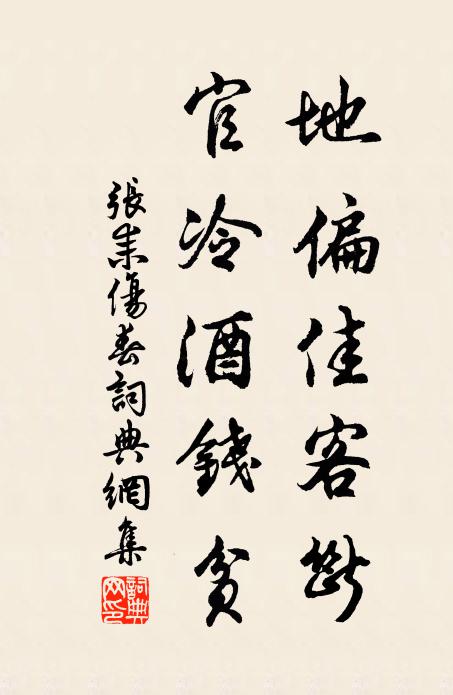 地偏佳客斷
官冷酒錢貧
張耒傷春詞典網集
詞典
网印